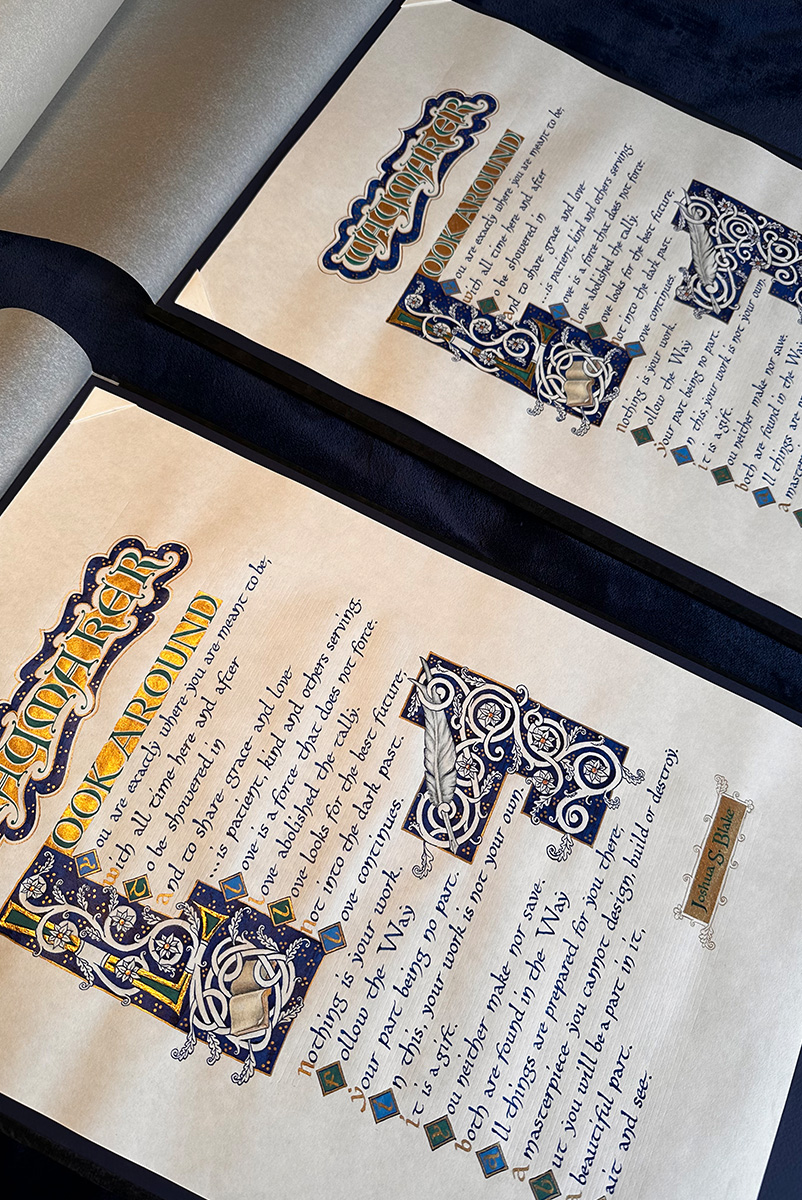 WAYMARKER
LOOK AROUND
You are exactly where you are meant to be,
with all time here and after
To be showered in
and to share grace and love
...is patient, kind and others serving.
Love is a force that does not force.
Love abolished the tally.
Love looks for the best future,
not into the dark past.
Love continues
nothing is your work.
Follow the Way
your part being no part
In this, your work is not your own,
it is a gift.
You neither make nor save
both are found in the Way
All things are
a master
AYMARKER
LOOK AROUND
You are exactly where you are meant to be,
with all time here and after
To be showered in
and to share grace and love
...is patient, kind and others serving.
Love is a force that does not force.
Love abolished the tally.
Love looks for the best future,
not into the dark past.
Love continues.
nothing is your work.
Follow the Way
your part being no part.
In this, your work is not your own,
it is a gift.
You neither make nor save.
both are found in the Way
All things are prepared for you there,
a masterpiece you cannot design build or destroy.
But you will be a part in it,
a beautiful part.
ait and see.
Joshua S. Blake